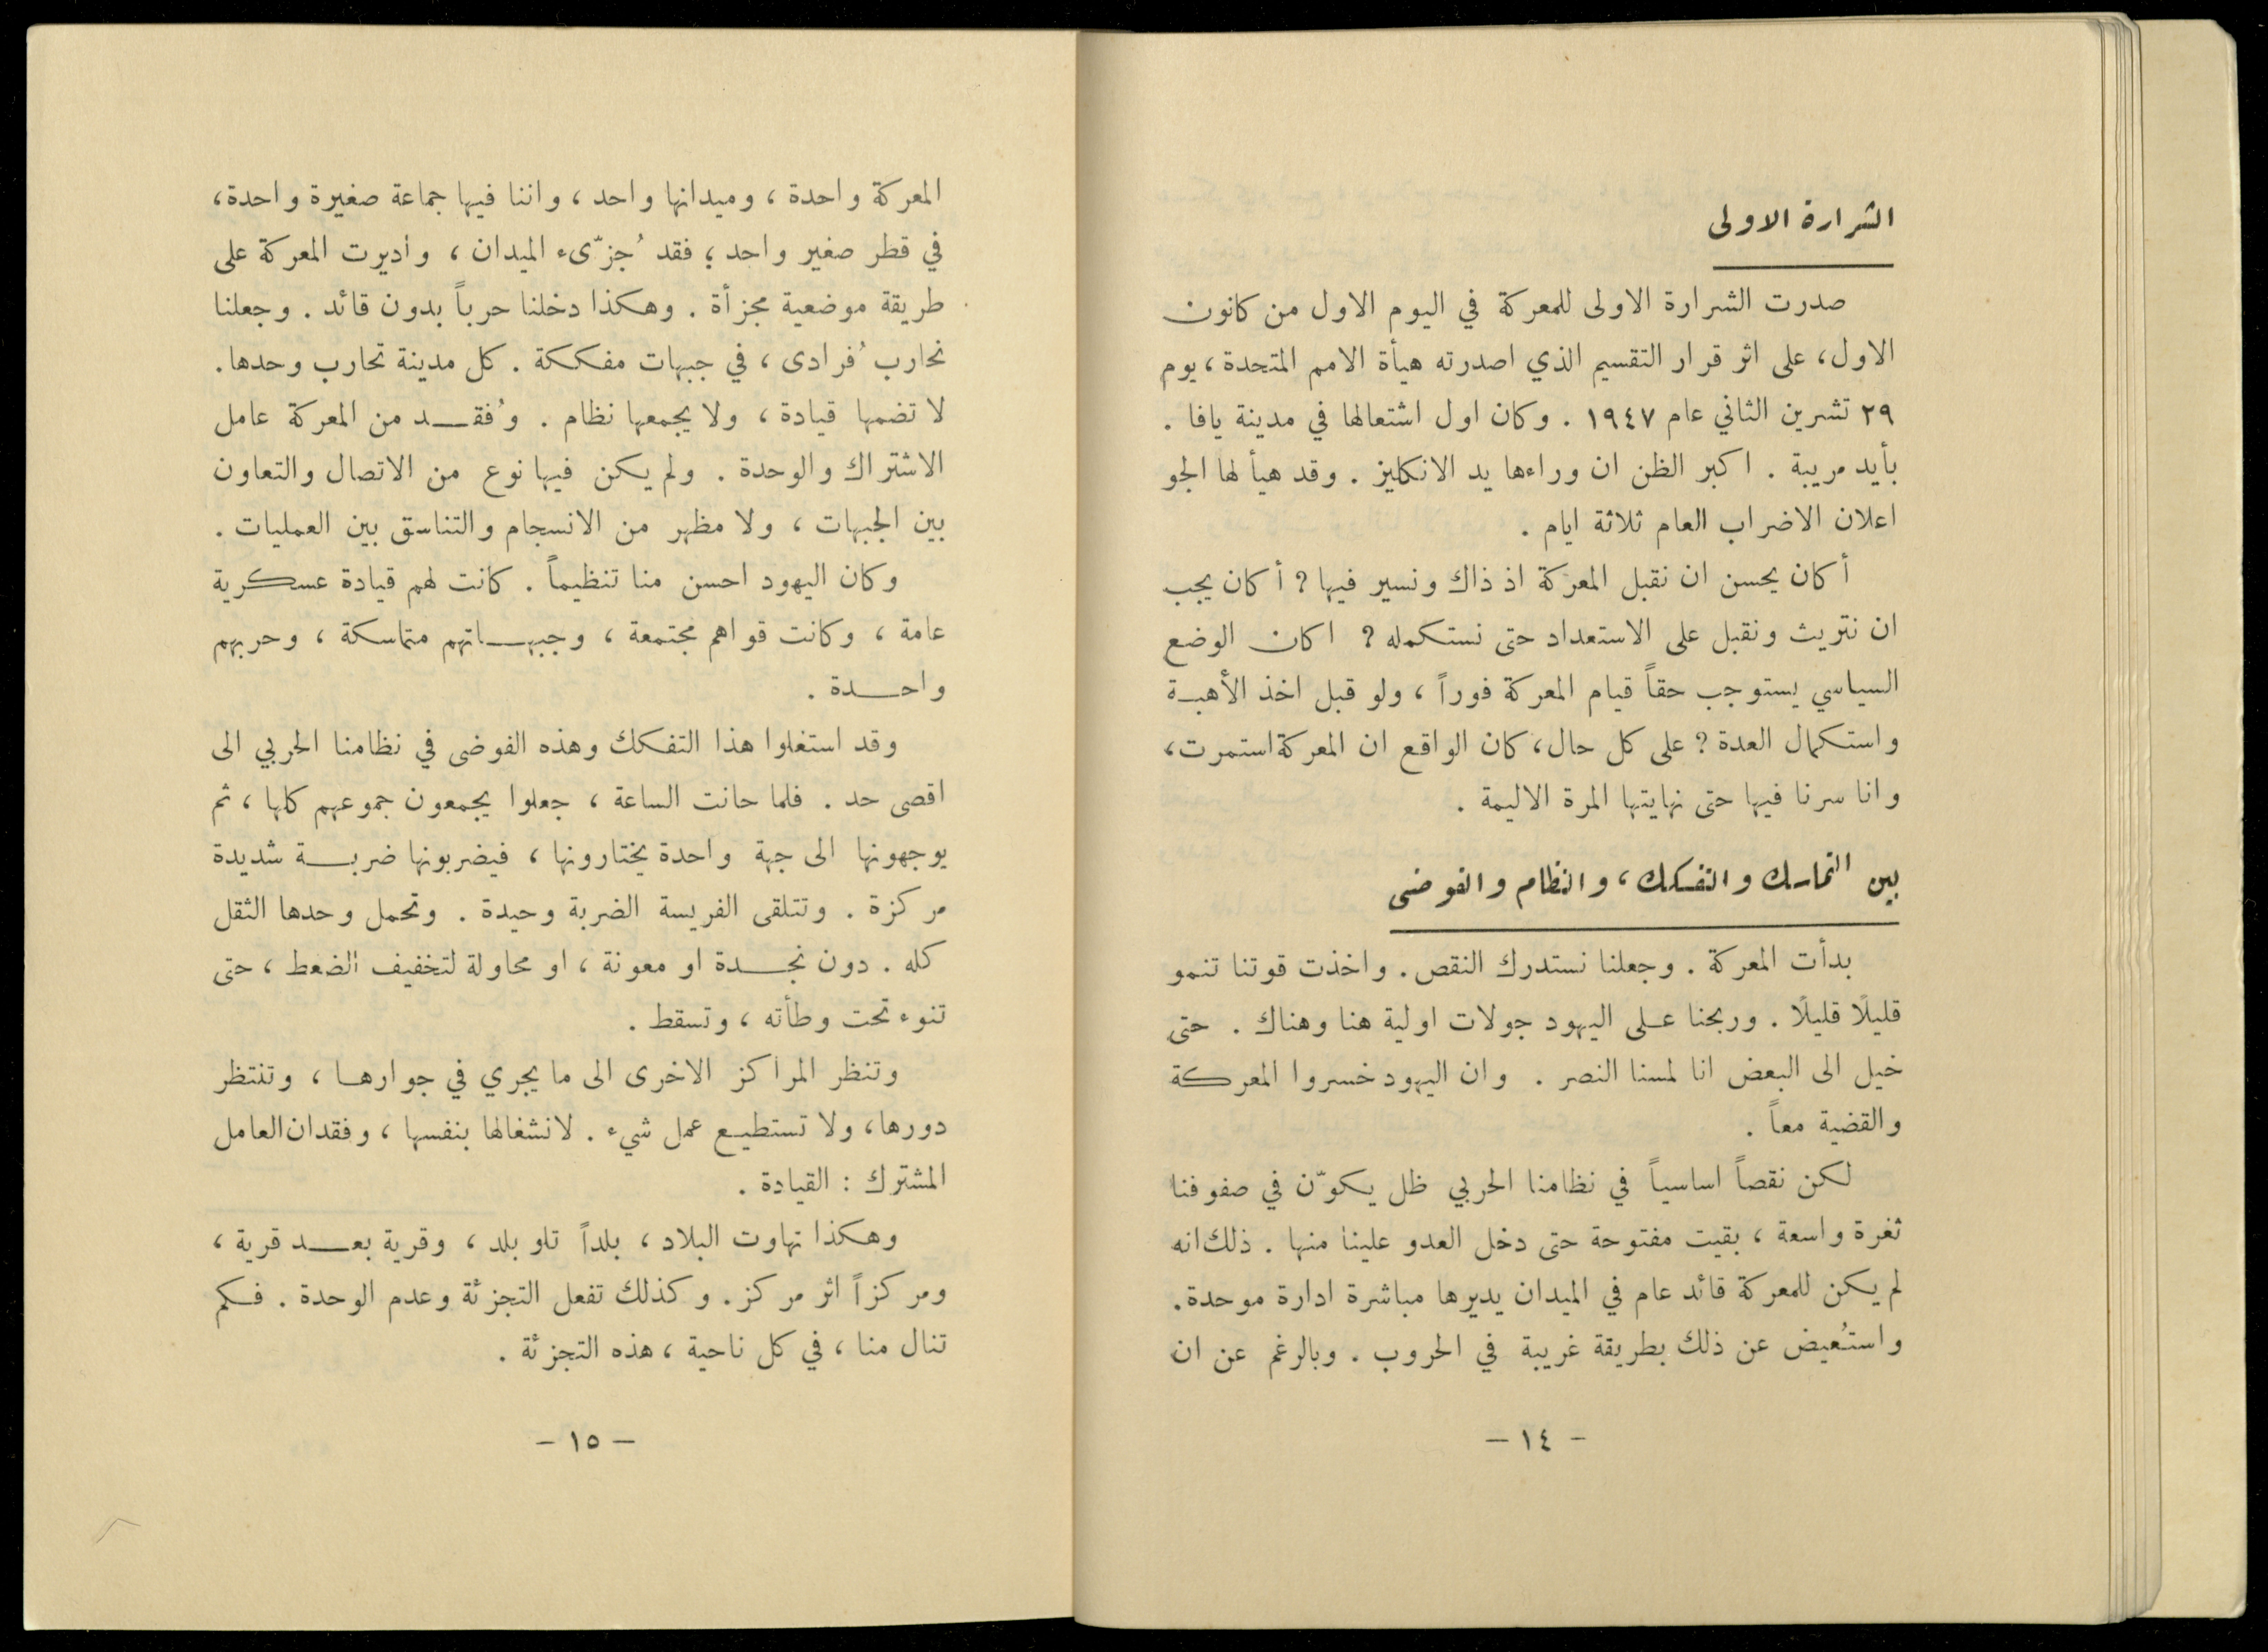 الشرارة الاولى
صدرت الشرارة الاولى للمعركة في اليوم الاول من كانون
الاول، على اثر قرار التقسيم الذي اصدرته هيأة الامم المتحدة، يوم
٢٩ تشرين الثاني عام ١٩٤٧ . وكان اول اشتعالها في مدينة يافا .
بأيد مريبة . اكبر الظن ان وراءها يد الانكليز . وقد هيأ لها الجو
اعلان الاضراب العام ثلاثة ايام .
أكان يحسن ان نقبل المعركة اذ ذاك ونسير فيها ? أكان يجب
ان نتريث ونقبل على الاستعداد حتى نستكمله ? اكان الوضع
السياسي يستوجب حقاً قيام المعركة فوراً ، ولو قبل اخذ الأهبة
واستكمال العدة ? على كل حال، كان الواقع ان المعركة استمرت،
وانا سرنا فيها حتى نهايتها المرة الاليمة .
بين التماسك والتفكك، والنظام والفوضى
بدأت المعركة . وجعلنا نستدرك النقص . واخذت قوتنا تنمو
قليلًا قليلًا . وربحنا على اليهود جولات اولية هنا وهناك . حتى
خيل الى البعض انا لمسنا النصر . وان اليهود خسروا المعركة
والقضية معاً .
لكن نقصاً اساسياً في نظامنا الحربي ظل يكوّن في صفوفنا
ثغرة واسعة ، بقيت مفتوحة حتى دخل العدو علينا منها . ذلك انه
لم يكن للمعركة قائد عام في الميدان يديرها مباشرة ادارة موحدة.
واستُعيض عن ذلك بطريقة غريبة في الحروب . وبالرغم عن ان
- ١٤ -
المعركة واحدة ، وميدانها واحد ، واننا فيها جماعة صغيرة واحدة،
في قطر صغير واحد ؛ فقد ُجزّىء الميدان ، واديرت المعركة على
طريقة موضعية مجزأة . وهكذا دخلنا حرباً بدون قائد . وجعلنا
نحارب ُفرادى ، في جبهات مفككة . كل مدينة تحارب وحدها.
لا تضمها قيادة ، ولا يجمعها نظام . وُفقد من المعركة عامل
الاشتراك والوحدة . ولم يكن فيها نوع من الاتصال والتعاون
بين الجبهات ، ولا مظهر من الانسجام والتناسق بين العمليات .
وكان اليهود احسن منا تنظيماً . كانت لهم قيادة عسكرية
عامة ، وكانت قواهم مجتمعة ، وجبهاتهم متماسكة ، وحربهم
واحدة .
وقد استغلوا هذا التفكك وهذه الفوضى في نظامنا الحربي الى
اقصى حد . فلما حانت الساعة ، جعلوا يجمعون جموعهم كلها ، ثم
يوجهونها الى جهة واحدة يختارونها ، فيضربونها ضربة شديدة
مركزة . وتتلقى الفريسة الضربة وحيدة . وتحمل وحدها الثقل
كله . دون نجدة او معونة ، او محاولة لتخفيف الضغط ، حتى
تنوء تحت وطأته ، وتسقط .
وتنظر المراكز الاخرى الى ما يجري في جوارها ، وتنتظر
دورها، ولا تستطيع عمل شيء . لانشغالها بنفسها ، وفقدان العامل
المشترك : القيادة .
وهكذا تهاوت البلاد ، بلداً تلو بلد ، وقرية بعد قرية ،
ومركزاً اثر مركز . وكذلك تفعل التجزئة وعدم الوحدة . فكم
تنال منا ، في كل ناحية ، هذه التجزئة .
- ١٥ -